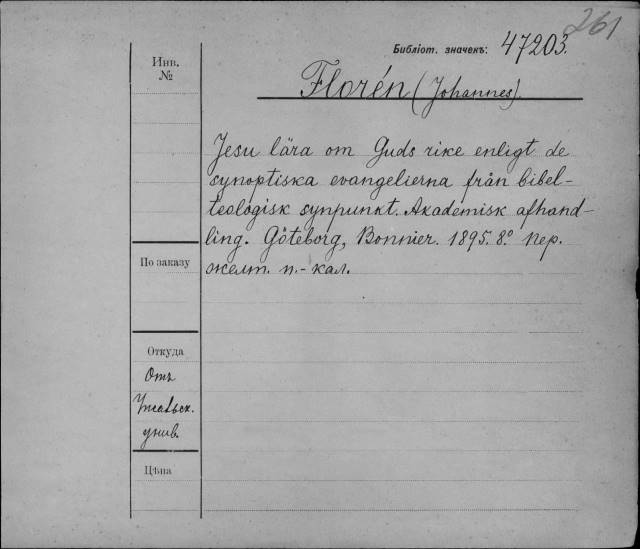 261
Библіот. значекъ: 47203.
Инв.
№
Florén (Johannes).
Jesu lära om Guds rike enligt de
synoptiska evangelierna från bibel-
teologisk synpunkt. Akademisk afhand-
ling. Göteborg, Bonnier. 1895. 8.° Пер.
желт. п.-кал.
По заказу
Откуда
Отъ
Упсальск.
унив.
Цѣна